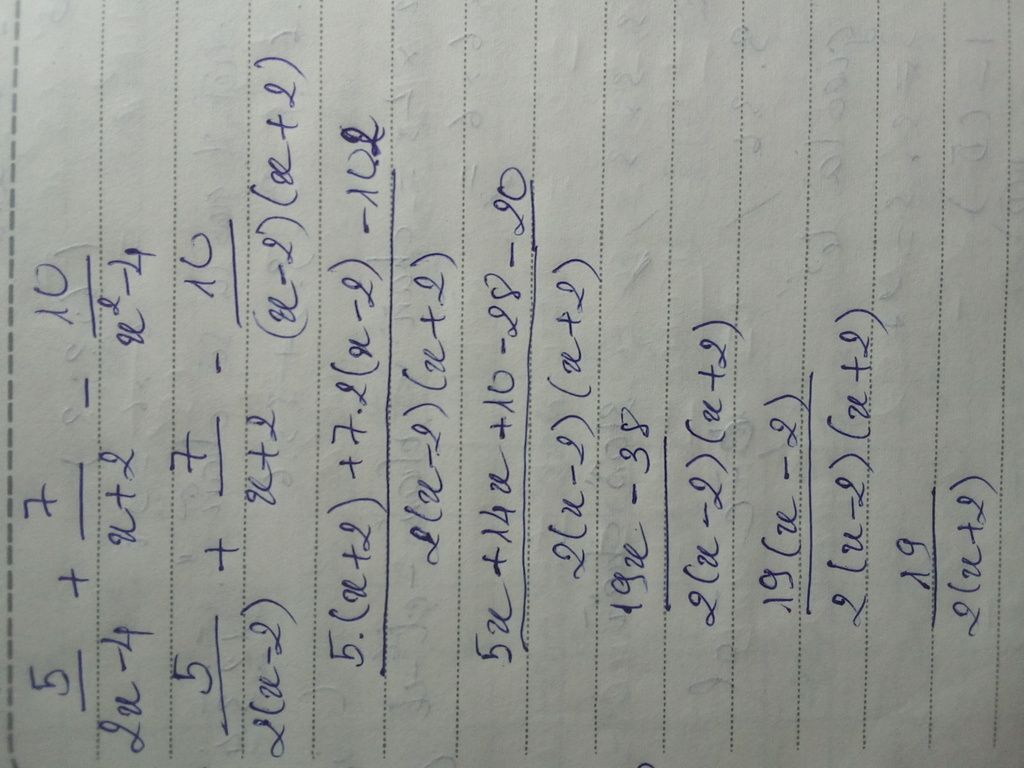 5/(2x-4) + 7/(x+2) - 10/(x²-4)
5/(2(x-2)) + 7/(x+2) - 10/((x-2)(x+2))
(5.(x+2)+7.2(x-2)-10.2)/(2(x-2)(x+2))
(5x+14x+10-28-20)/(2(x-2)(x+2))
(19x-38)/(2(x-2)(x+2))
(19(x-2))/(2(x-2)(x+2))
19/(2(x+2))